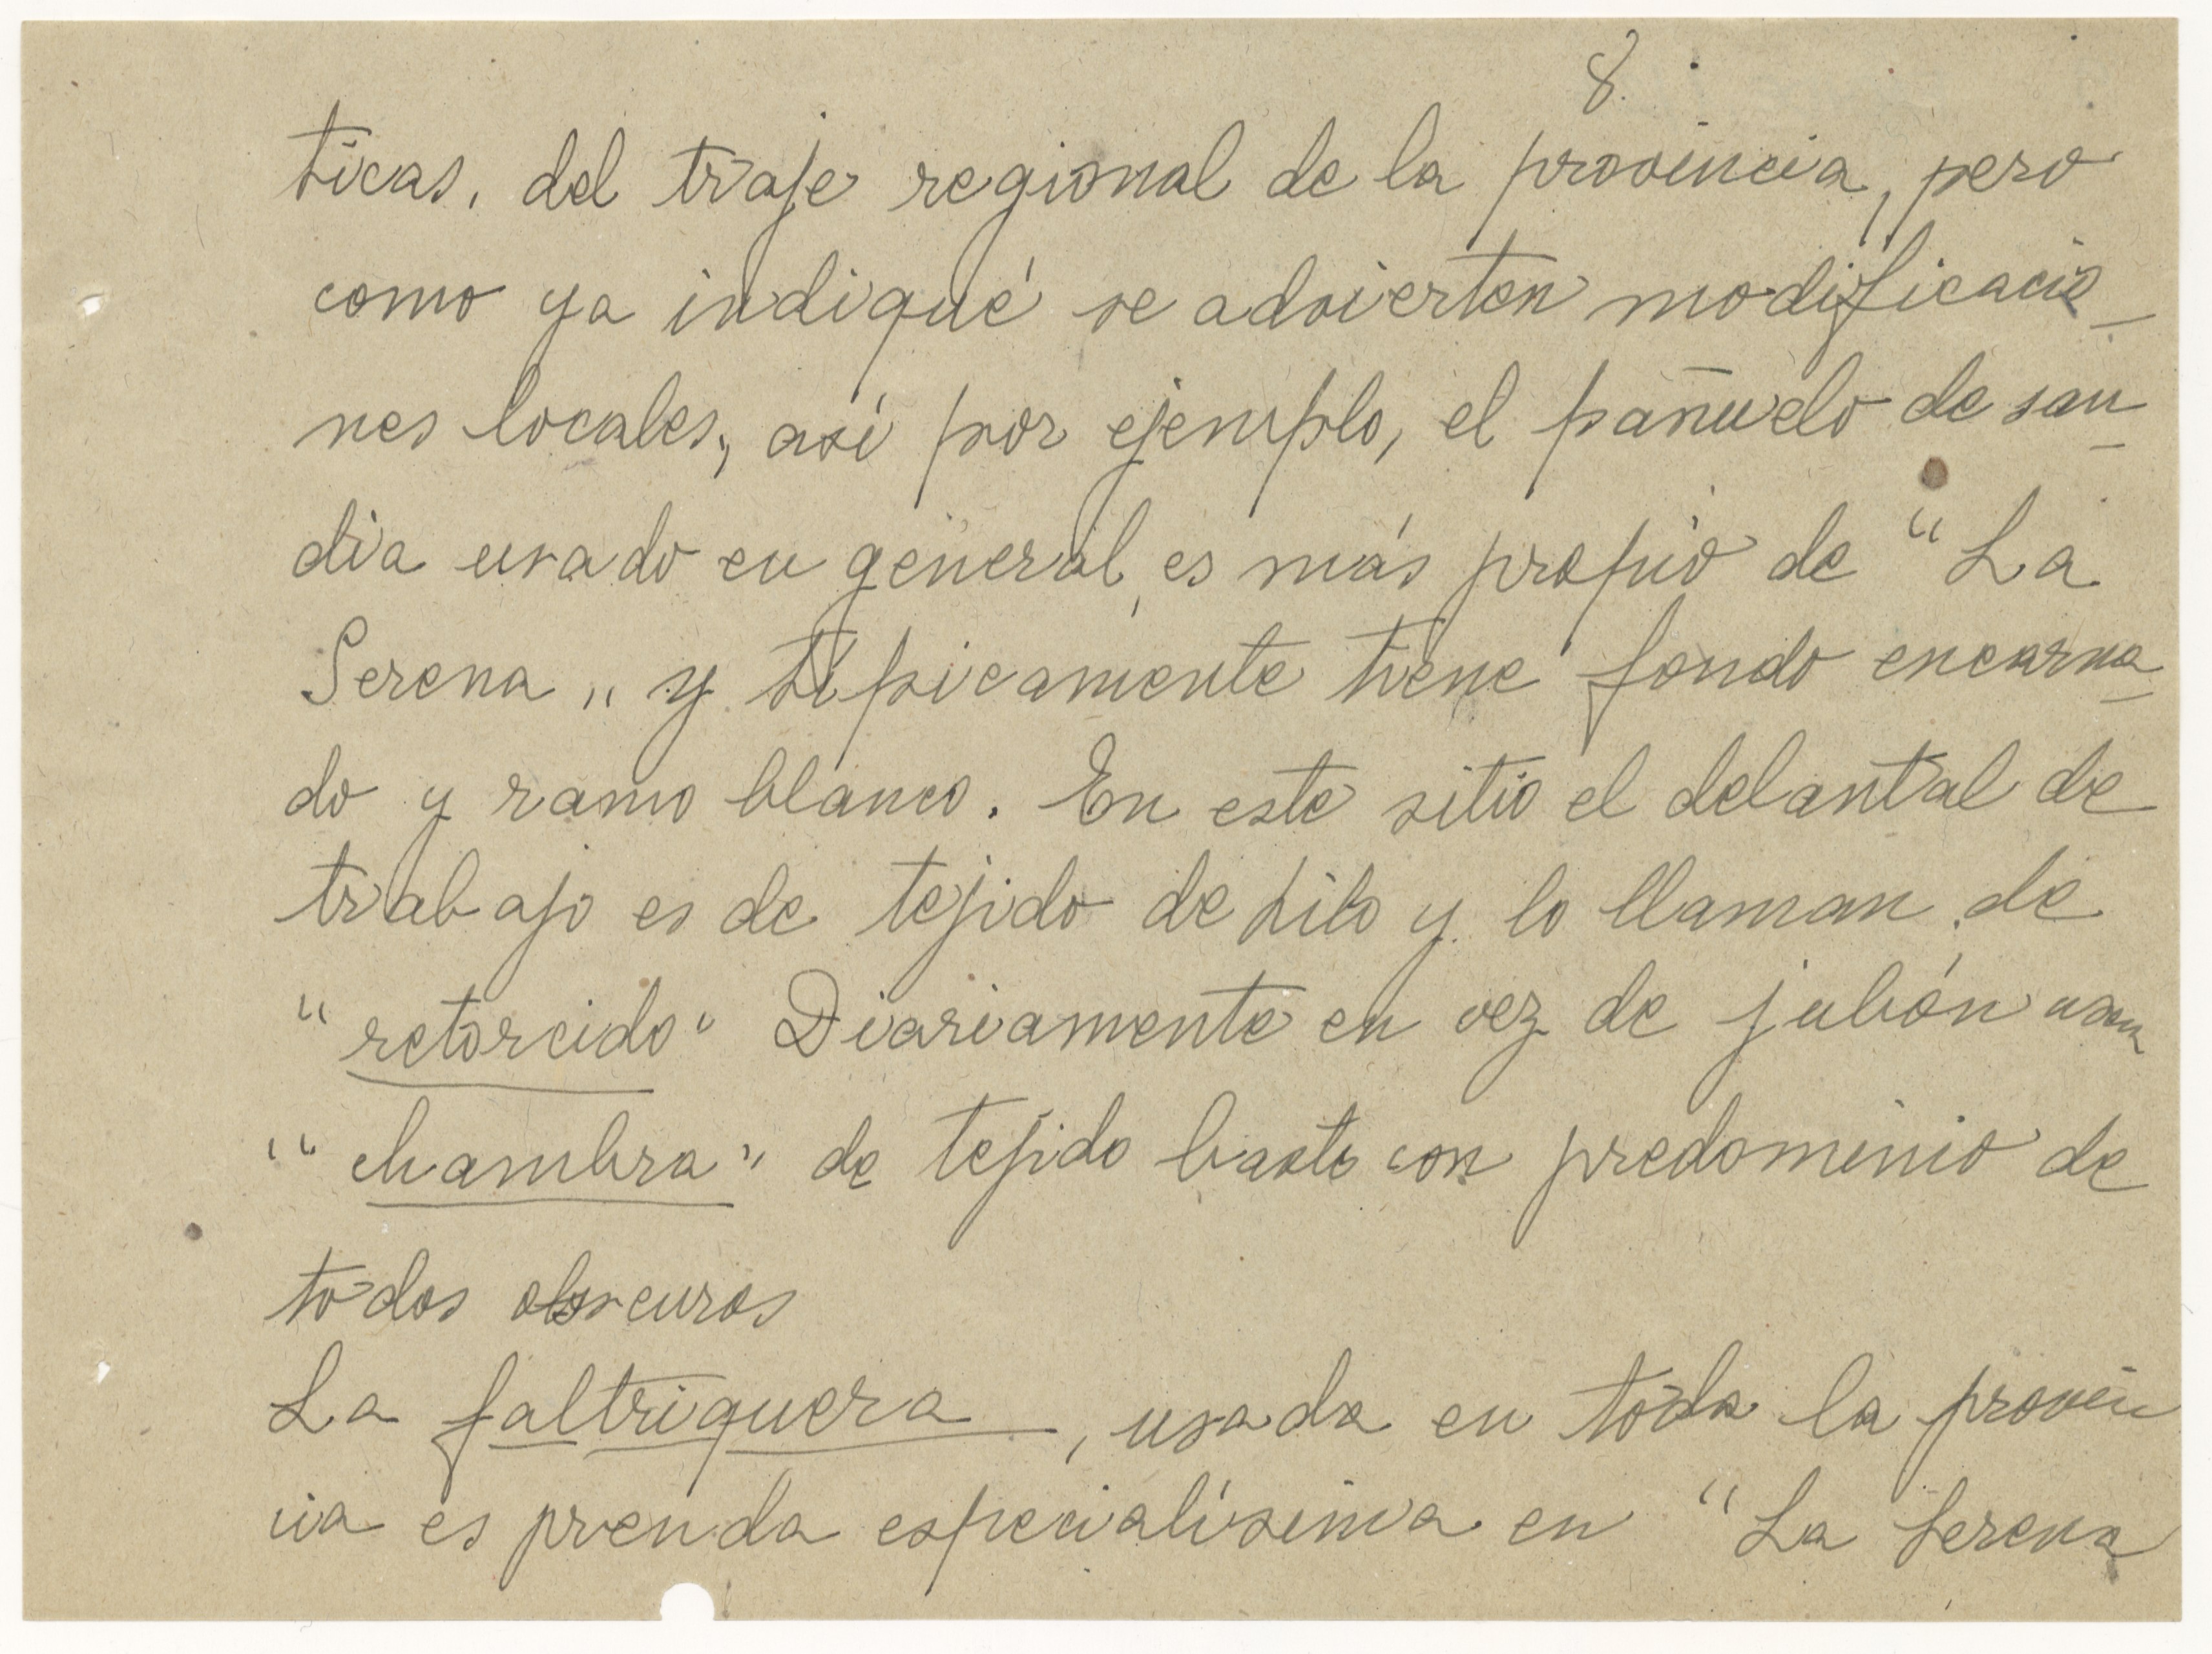 8.
ticas, del traje regional de la provincia, pero
como ya indiqué se advierten modificacio-
nes locales, así por ejemplo, el pañuelo de san-
dia usado en general, es más propio de "La
Serena" y típicamente tiene fondo encarna-
do y ramo blanco. En este sitio el delantal de
trabajo es de tejido de hilo y lo llaman de
"retorcido" Diariamente en vez de jubón usan
"chambra" de tejido basto con predominio de
todos obscuros
La faltriquera, usada en toda la provin
cia es prenda especialísima en "La Serena